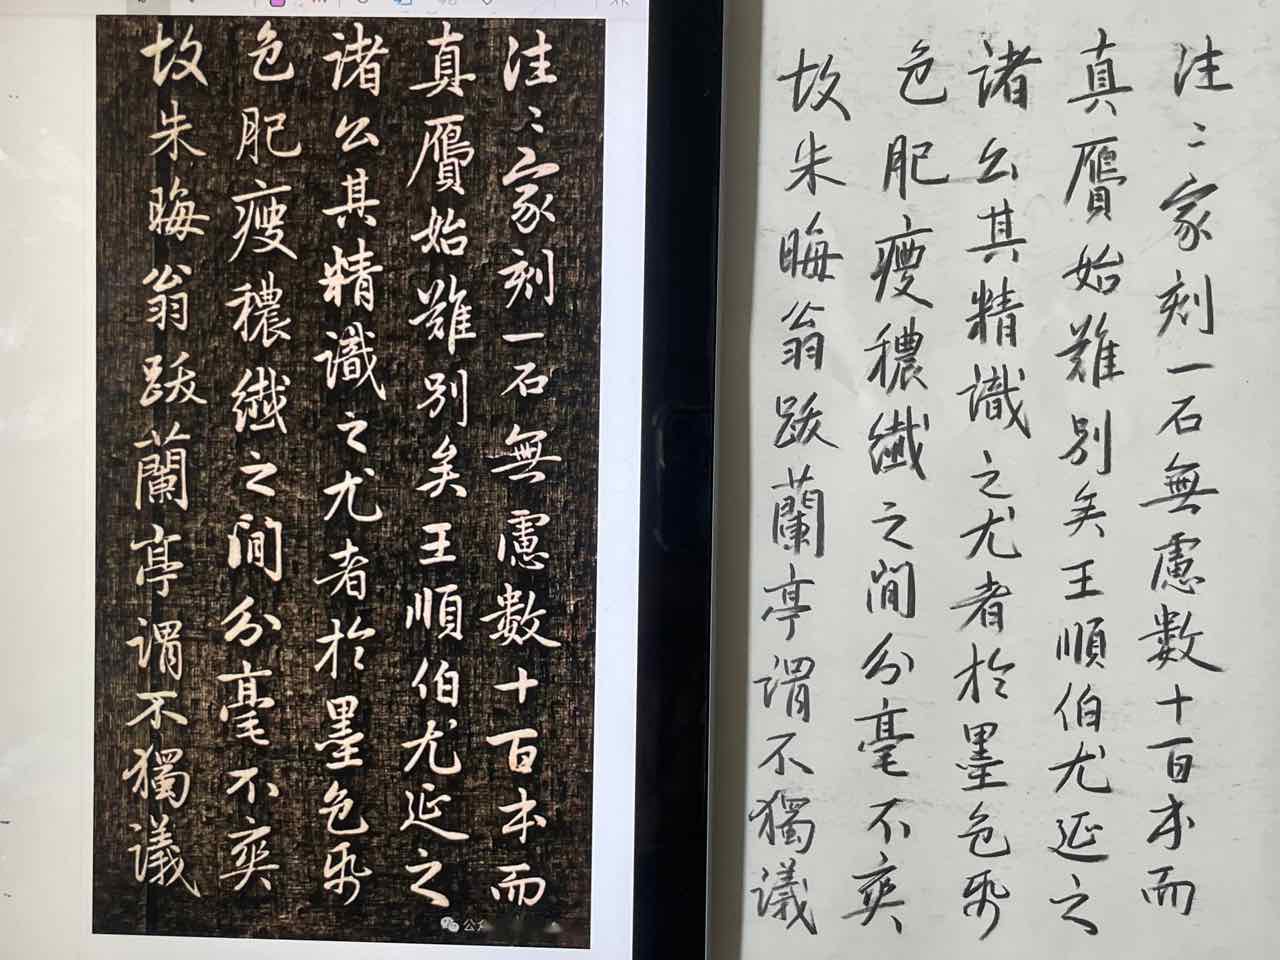 注〻家刻一石無慮數十百本而
真贗始難別矣王順伯尤延之
諸公其精識之尤者於墨色帋
色肥瘦穠纖之間分毫不爽
故朱晦翁跋蘭亭謂不獨議
公众
注〻家刻一石無慮數十百本而
真贗始難別矣王順伯尤延之
諸公其精識之尤者於墨色帋
色肥瘦穠纖之間分毫不爽
故朱晦翁跋蘭亭謂不獨議